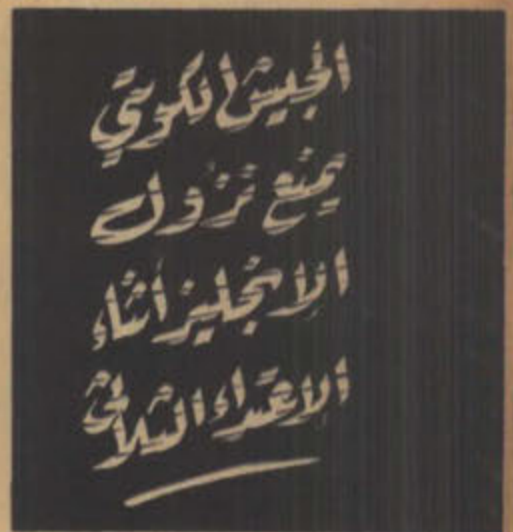 الجيش الكويتي
يمنع نزول
الانجليز أثناء
الاعتداء الثلاثي